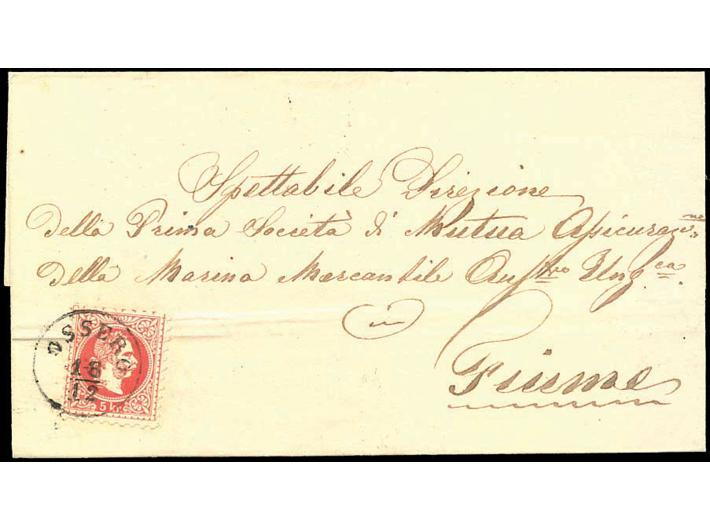 Spettabile Direzione
della Prima Società di Mutua Assicurazne
della Marina Mercantile Austro Ungca.
in
Fiume
OSSERO
18
12
5 kr.